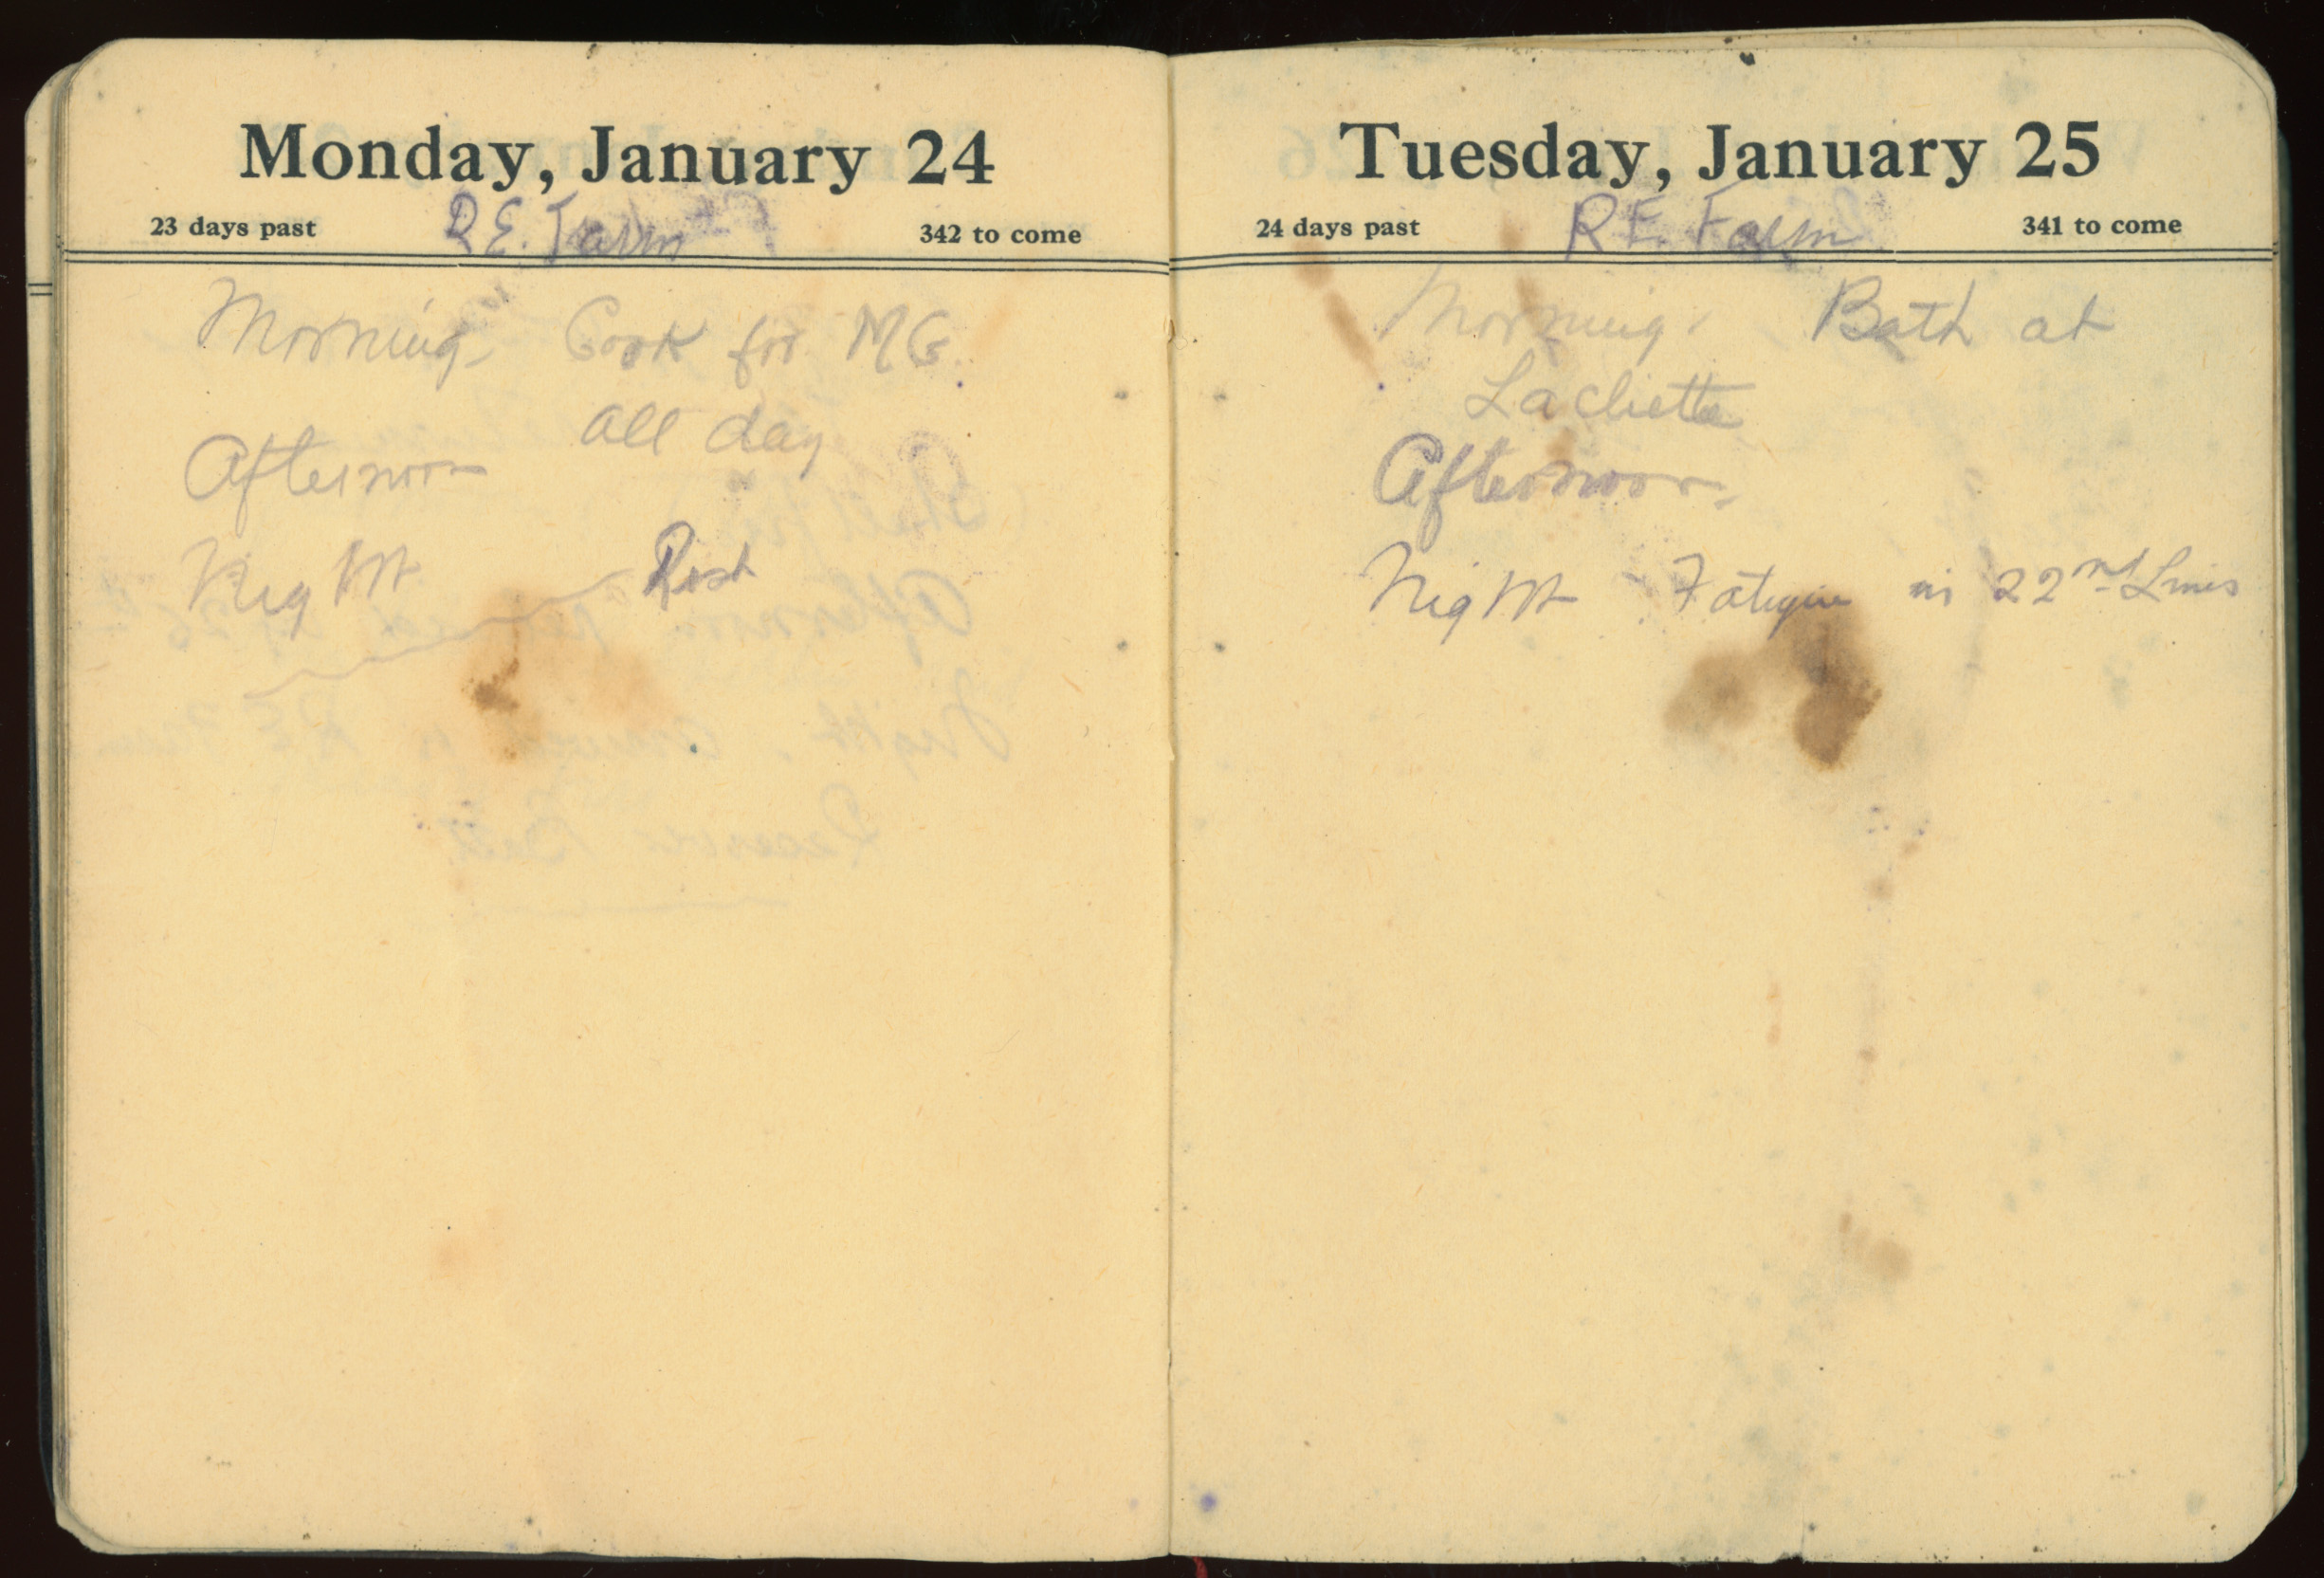 Monday, January 24
23 days past R.E. Farm 342 to come
Morning Cook for MG
all day
Afternoon
Night Rest
Tuesday, January 25
24 days past R.E. Farm 341 to come
Morning. Bath at
Lacliette
Afternoon
Night Fatigue in 22nd Lines